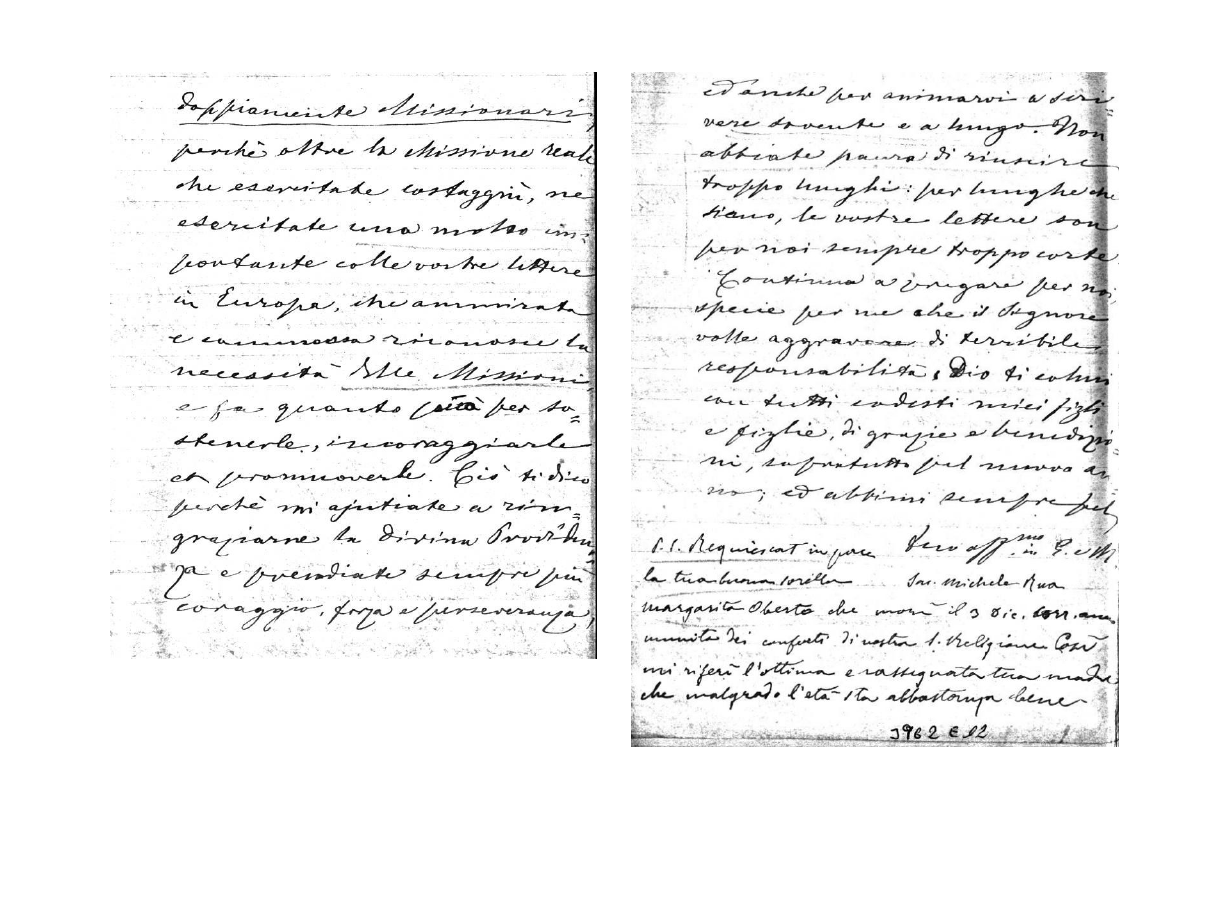 doppiamente Missionari,
perchè oltre la Missione reale
che esercitate costaggiù, ne
esercitate una molto im-
portante colle vostre lettere
in Europa, che ammirata
e commossa riconosce la
necessità delle Missioni,
e fa quanto può per so=
stenerle, incoraggiarle
et promuoverle. Ciò ti dico
perchè mi ajutiate a rin=
graziarne la divina Provviden=
za e prendiate sempre più
coraggio, forza e perseveranza,
ed anche per animarvi a scri=
vere sovente e a lungo. Non
abbiate paura di riuscire
troppo lunghi: per lunghe che
siano, le vostre lettere son
per noi sempre troppo corte
Continua a pregare per noi,
specie per me che il Signore
volle aggravare di terribile
responsabilità, Dio ti colmi
con tutti codesti miei figli
e figlie, di grazie e benedizio
ni, sopratutto pel nuovo an
no; ed abbimi sempre pel
Tuo aff.mo in G. e M
Sac. Michele Rua
P.S. Requiescat in pace
la tua buona sorella
Margarita Oberto che morì il 3 Dic. corr. anno
munita dei conforti di nostra S. Religione Così
mi riferì l'ottima e rassegnata tua madre
che malgrado l'età sta abbastanza bene
3962 E 12